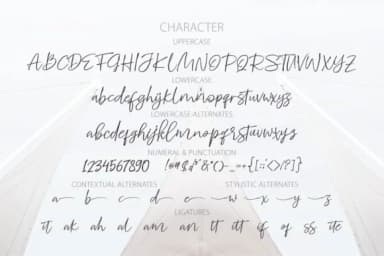 CHARACTER
UPPERCASE
ABCDEFGHIJKLMNOPQRSTUVWXYZ
LOWERCASE
abcdefghijklmnopqrstuvwxyz
LOWERCASE ALTERNATES
abcdefghijklmnopqrstuvwxyz
NUMERAL & PUNCTUATION
1234567890
CONTEXTUAL ALTERNATES STYLISTIC ALTERNATES
a b c d e w x y z
LIGATURES
it ak ah al am an tt at if of ss ite